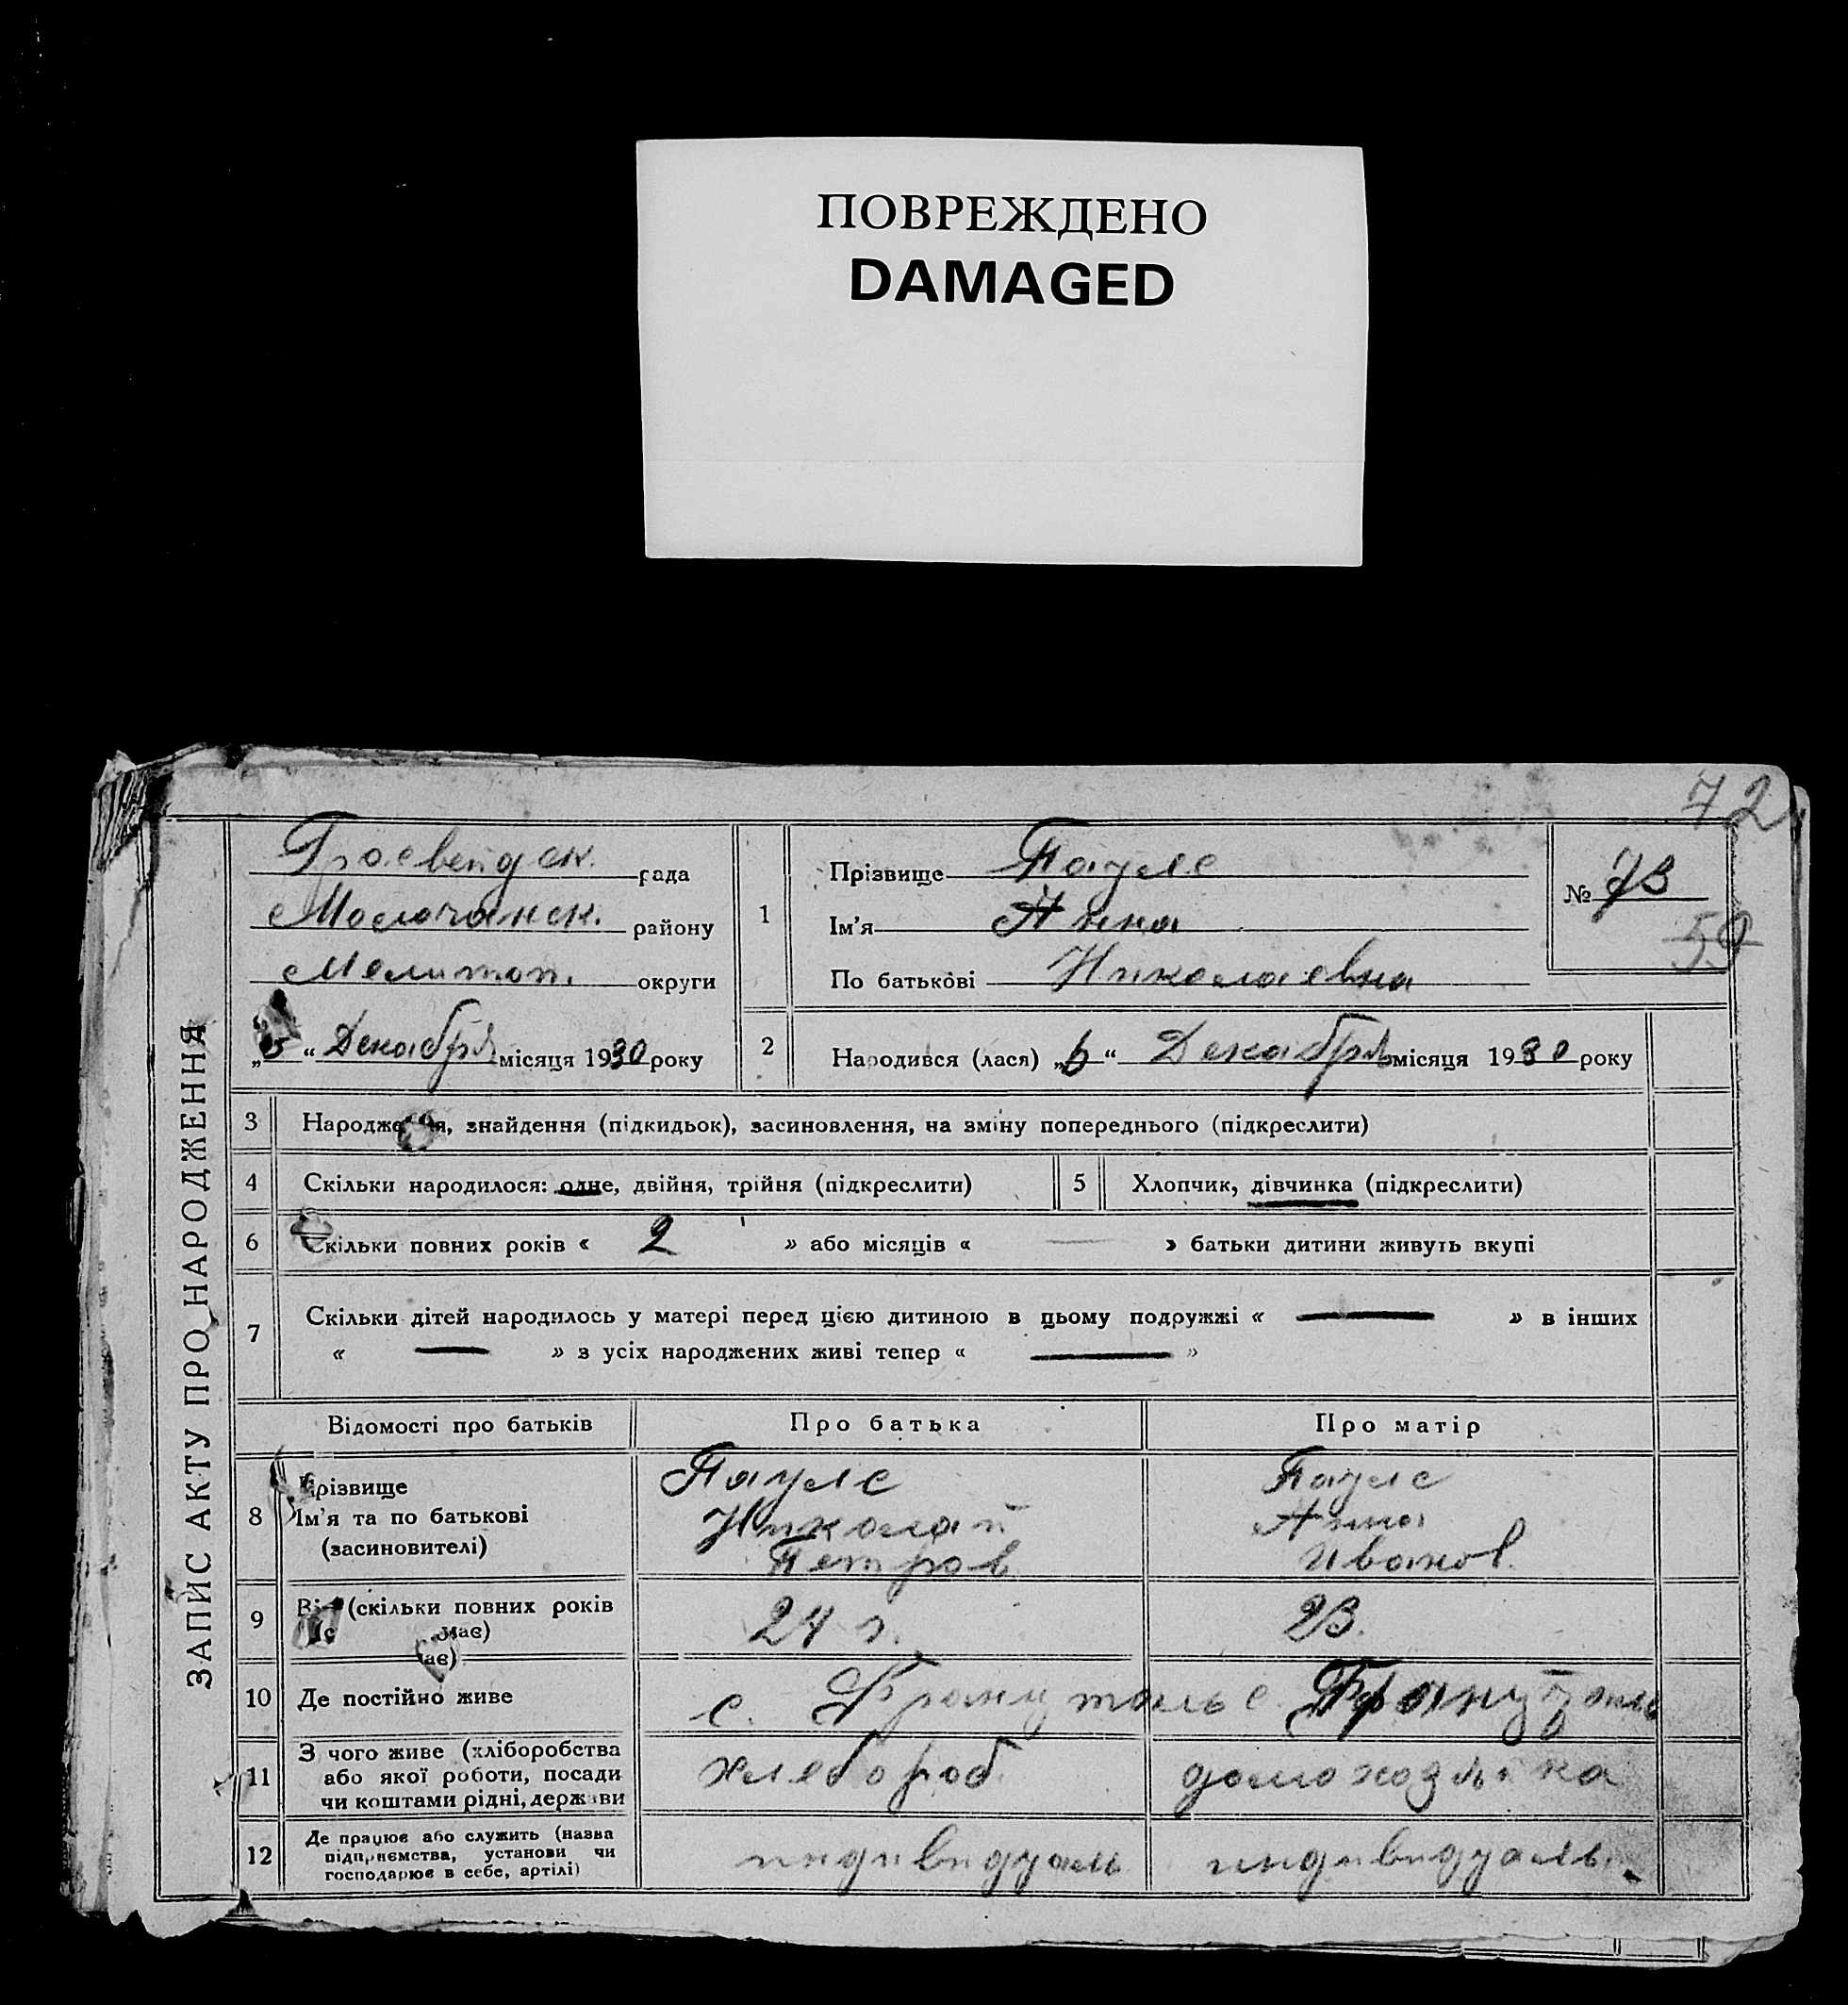 ПОВРЕЖДЕНО
DAMAGED
72
ЗАПИС АКТУ ПРО НАРОДЖЕННЯ
рада
Молочанск. району
Мелитоп. округи
„ “ Декабря місяця 1930 року
1
Прізвище Паулс
Ім'я Анна
По батькові Николаевна
№ 73
59
2
Народився (лася) „6“ Декабря місяця 1930 року
3 Народження, знайдення (підкидьок), засиновлення, на зміну попереднього (підкреслити)
4 Скільки народилося: одне, двійня, трійня (підкреслити)
5 Хлопчик, дівчинка (підкреслити)
6 Скільки повних років « 2 » або місяців « — » батьки дитини живуть вкупі
7 Скільки дітей народилось у матері перед цією дитиною в цьому подружжі « — » в інших
« — » з усіх народжених живі тепер « — »
Відомості про батьків Про батька Про матір
8
Прізвище
Ім'я та по батькові
(засиновителі)
Паулс
Николай
Петров
Паулс
Анна
Иванов.
9
Вік (скільки повних років
має)
має)
24 г.
23.
10 Де постійно живе
с.
с.
11
З чого живе (хліборобства
або якої роботи, посади
чи коштами рідні, держави
хлебороб.
домохозяйка
12
Де працює або служить (назва
підприємства, установи чи
господарює в себе, артілі)
индивидуаль
индивидуаль.